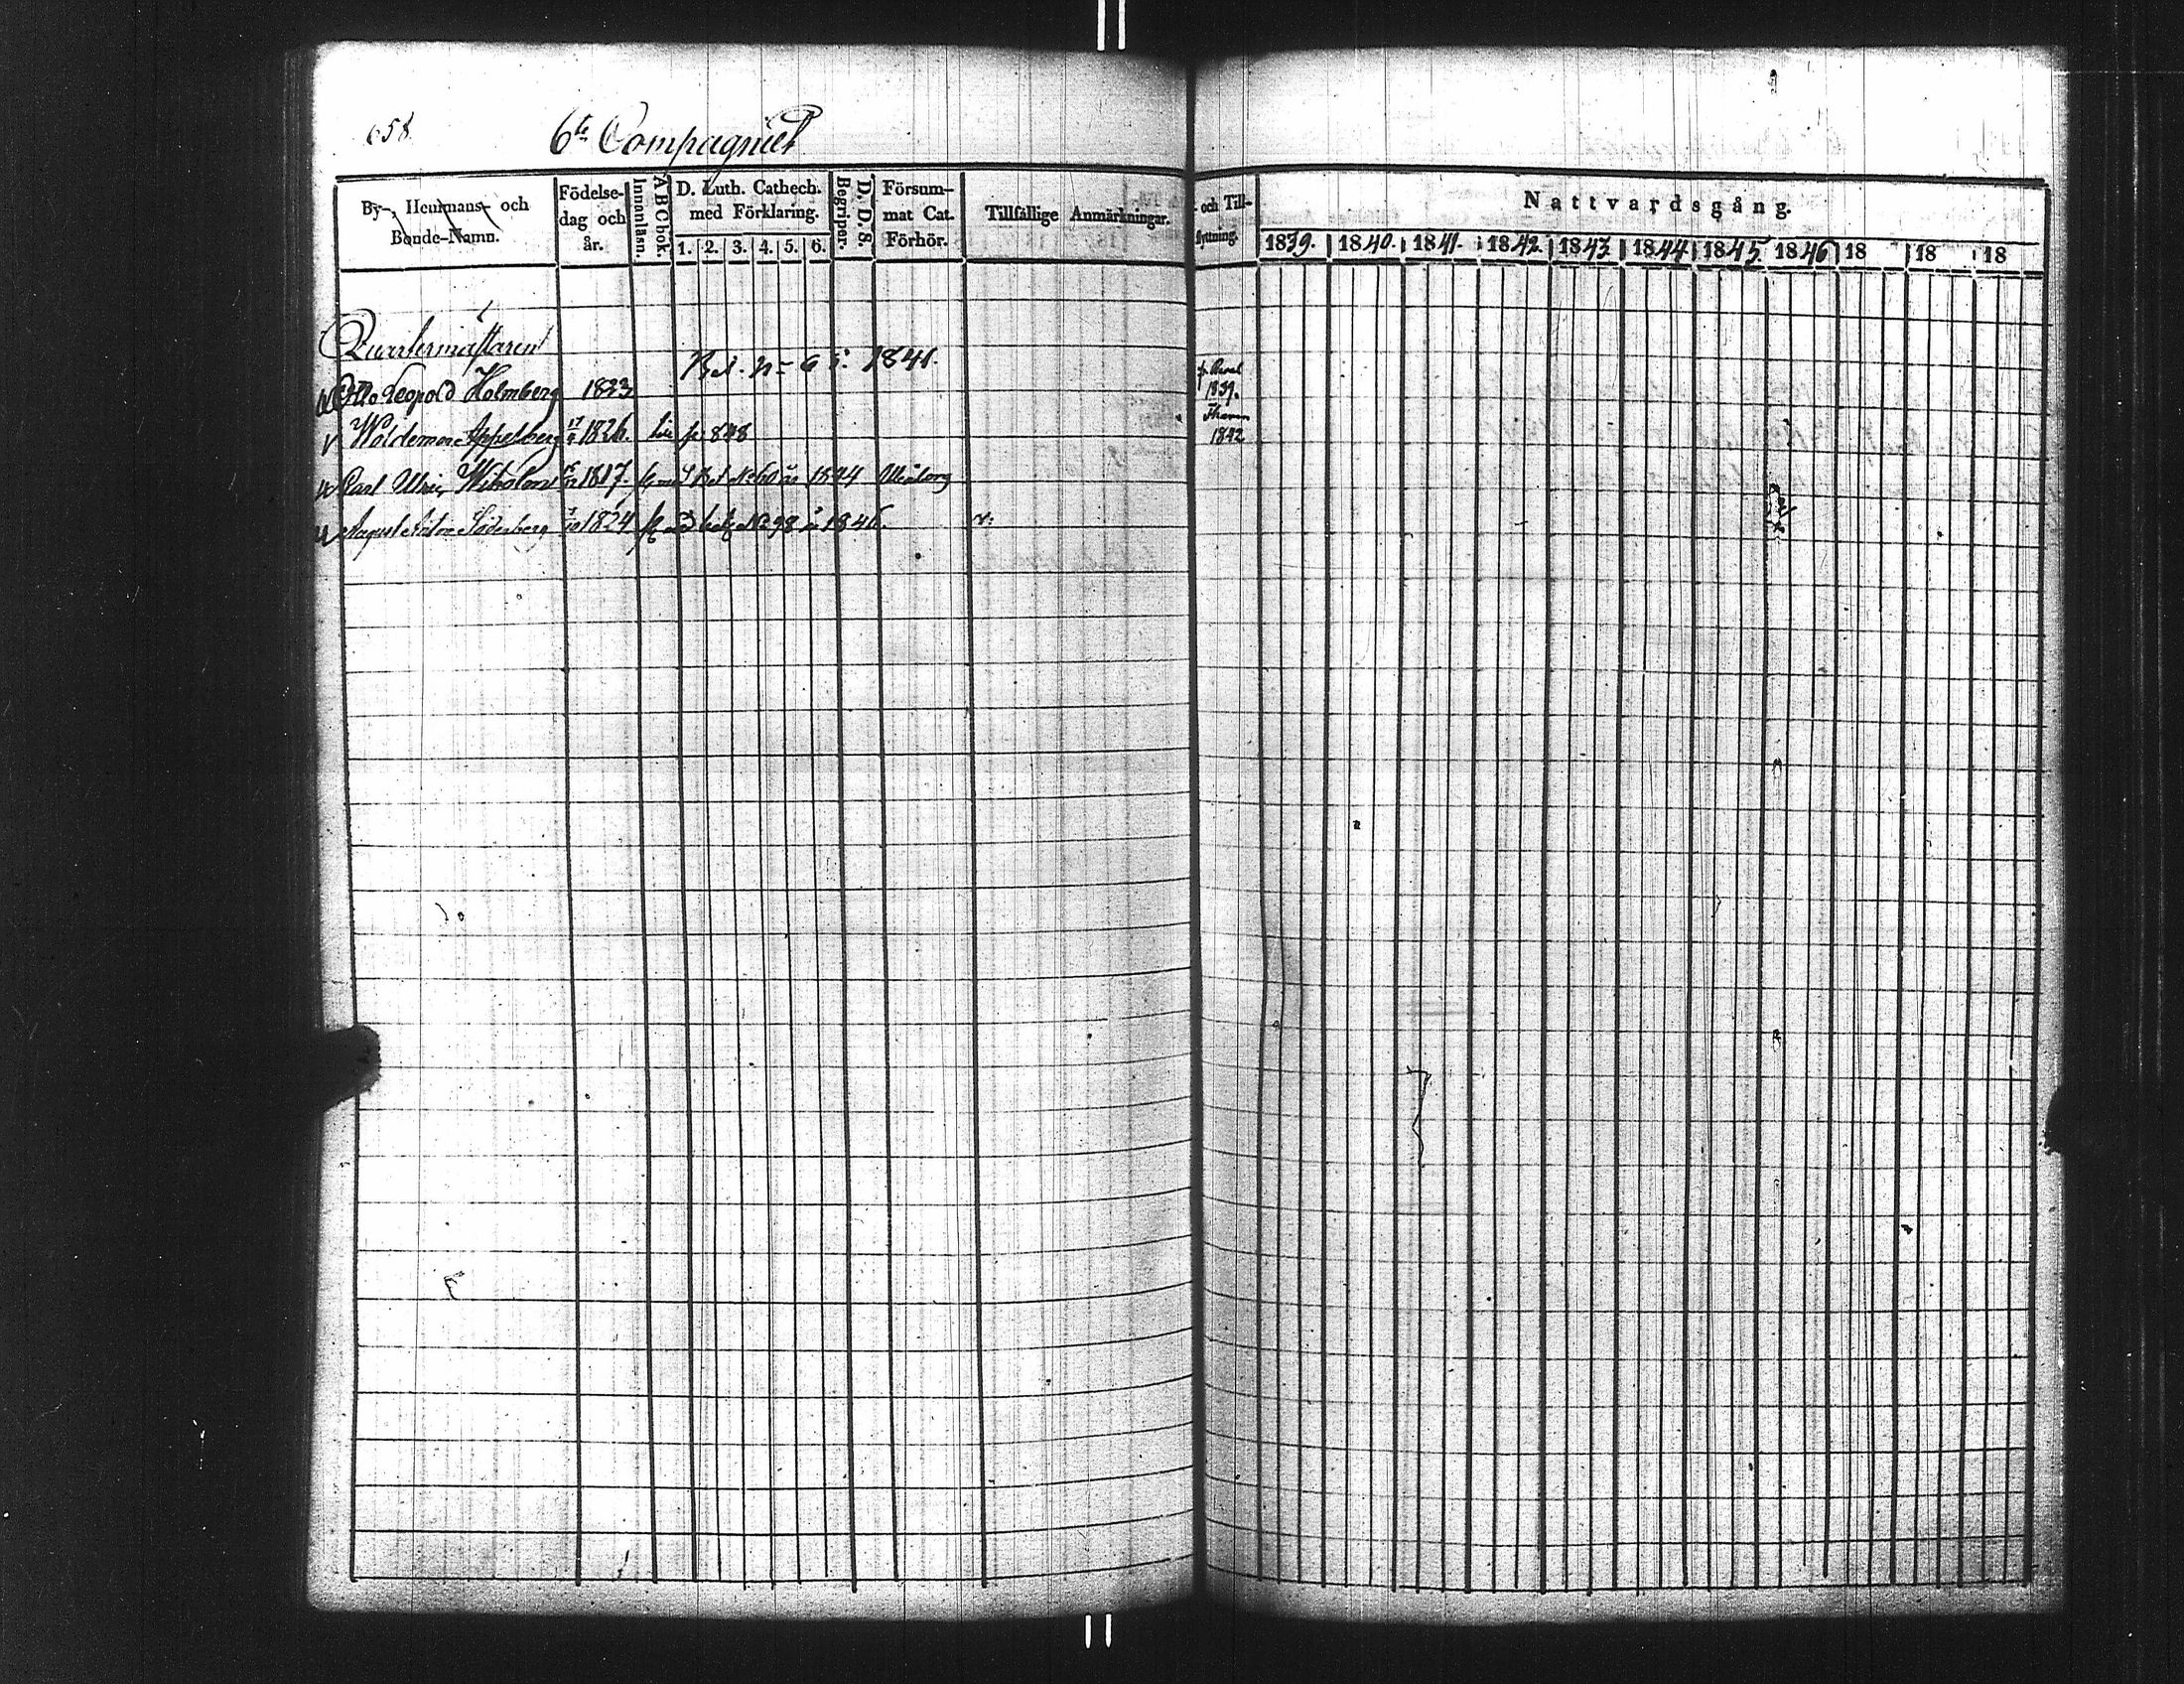 658.
6te Compagniet
By-, Hemmans- och Bonde-Namn.
Födelse-dag och år.
Innanläsn.
ABC bok.
D. Luth. Cathech. med Förklaring.
1. 2. 3. 4. 5. 6.
Begriper.
D. D. S.
Försum-mat Cat. Förhör.
Tillfällige Anmärkningar.
- och Till-flyttning.
Nattvardsgång.
1839. 1840. 1841. 1842. 1843. 1844 1845. 1846 18 18 18
Quartermästaren
Otto Leopold Holmberg 1823 Bet. 1841. 1839.
Woldemar Appelberg 17 1826. p. 848 1842
Carl 1817. Bet No 60 år 1844
August Söderberg 1824 No 98 å 1846.